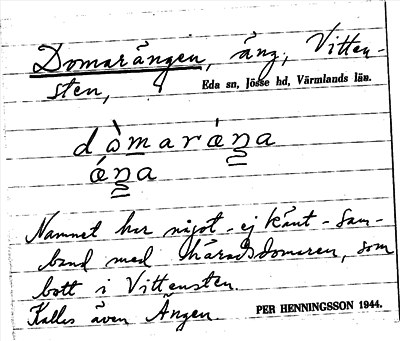 Domarängen, äng, Vitten-
sten,
Eda sn, Jösse hd, Värmlands län.
dòmaráŋa
áŋa
Namnet har något - ej känt - sam-
band med häradsdomaren, som
bott i Vittensten.
Kallas även Ängen
PER HENNINGSSON 1944.